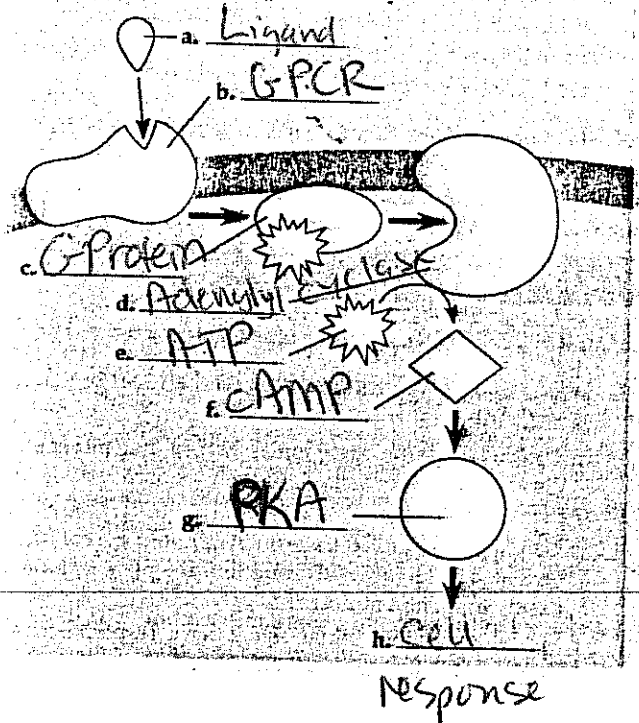 a. Ligand
b. GPCR
c. G-Protein
d. Adenylyl cyclase
e. ATP
f. cAMP
g. PKA
h. Cell
response